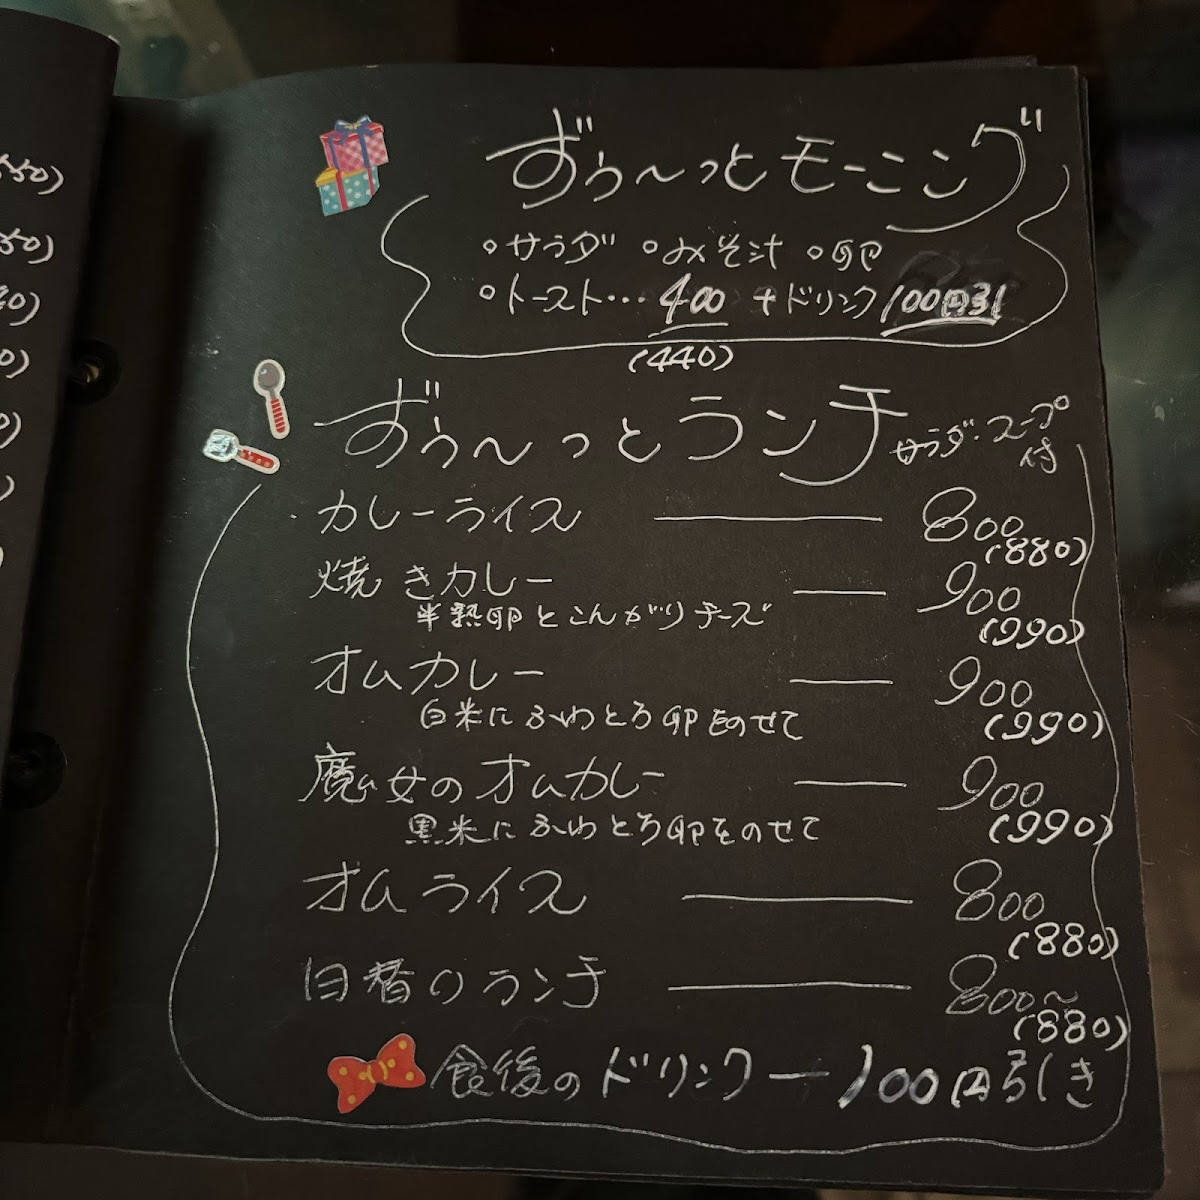 ずぅ〜っとモーニング
○サラダ ○みそ汁 ○卵
○トースト… 400 +ドリンク100円引
(440)
ずぅ〜っとランチ サラダ・スープ付
カレーライス 800
(880)
焼きカレー 900
半熟卵とこんがりチーズ (990)
オムカレー 900
白米にふわとろ卵をのせて (990)
魔女のオムカレー 900
黒米にふわとろ卵をのせて (990)
オムライス 800
(880)
日替りランチ 800〜
(880)
食後のドリンク ー 100円引き